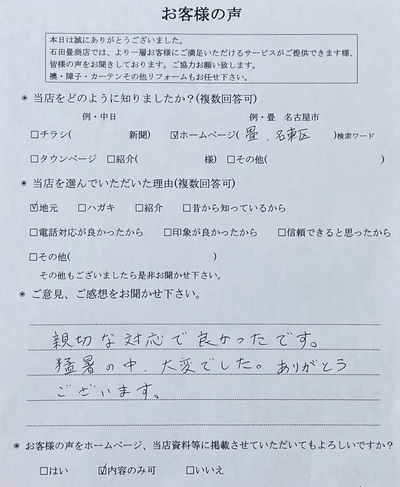 お客様の声
本日は誠にありがとうございました。
石田畳商店では、より一層お客様にご満足いただけるサービスがご提供できます様、
皆様の声をお聞きしております。ご協力お願い致します。
襖・障子・カーテンその他リフォームもお任せ下さい。
◉ 当店をどのように知りましたか？(複数回答可)
例・中日 例・畳 名古屋市
☐チラシ( 新聞) ☑ホームページ( 畳. 名東区 )検索ワード
☐タウンページ ☐紹介( 様) ☐その他( )
◉ 当店を選んでいただいた理由(複数回答可)
☑地元 ☐ハガキ ☐紹介 ☐昔から知っているから
☐電話対応が良かったから ☐印象が良かったから ☐信頼できると思ったから
☐その他( )
その他もございましたら是非お聞かせ下さい。
◉ ご意見、ご感想をお聞かせ下さい。
親切な対応で良かったです。
猛暑の中. 大変でした。ありがとう
ございます。
◉ お客様の声をホームページ、当店資料等に掲載させていただいてもよろしいですか？
☐はい ☑内容のみ可 ☐いいえ